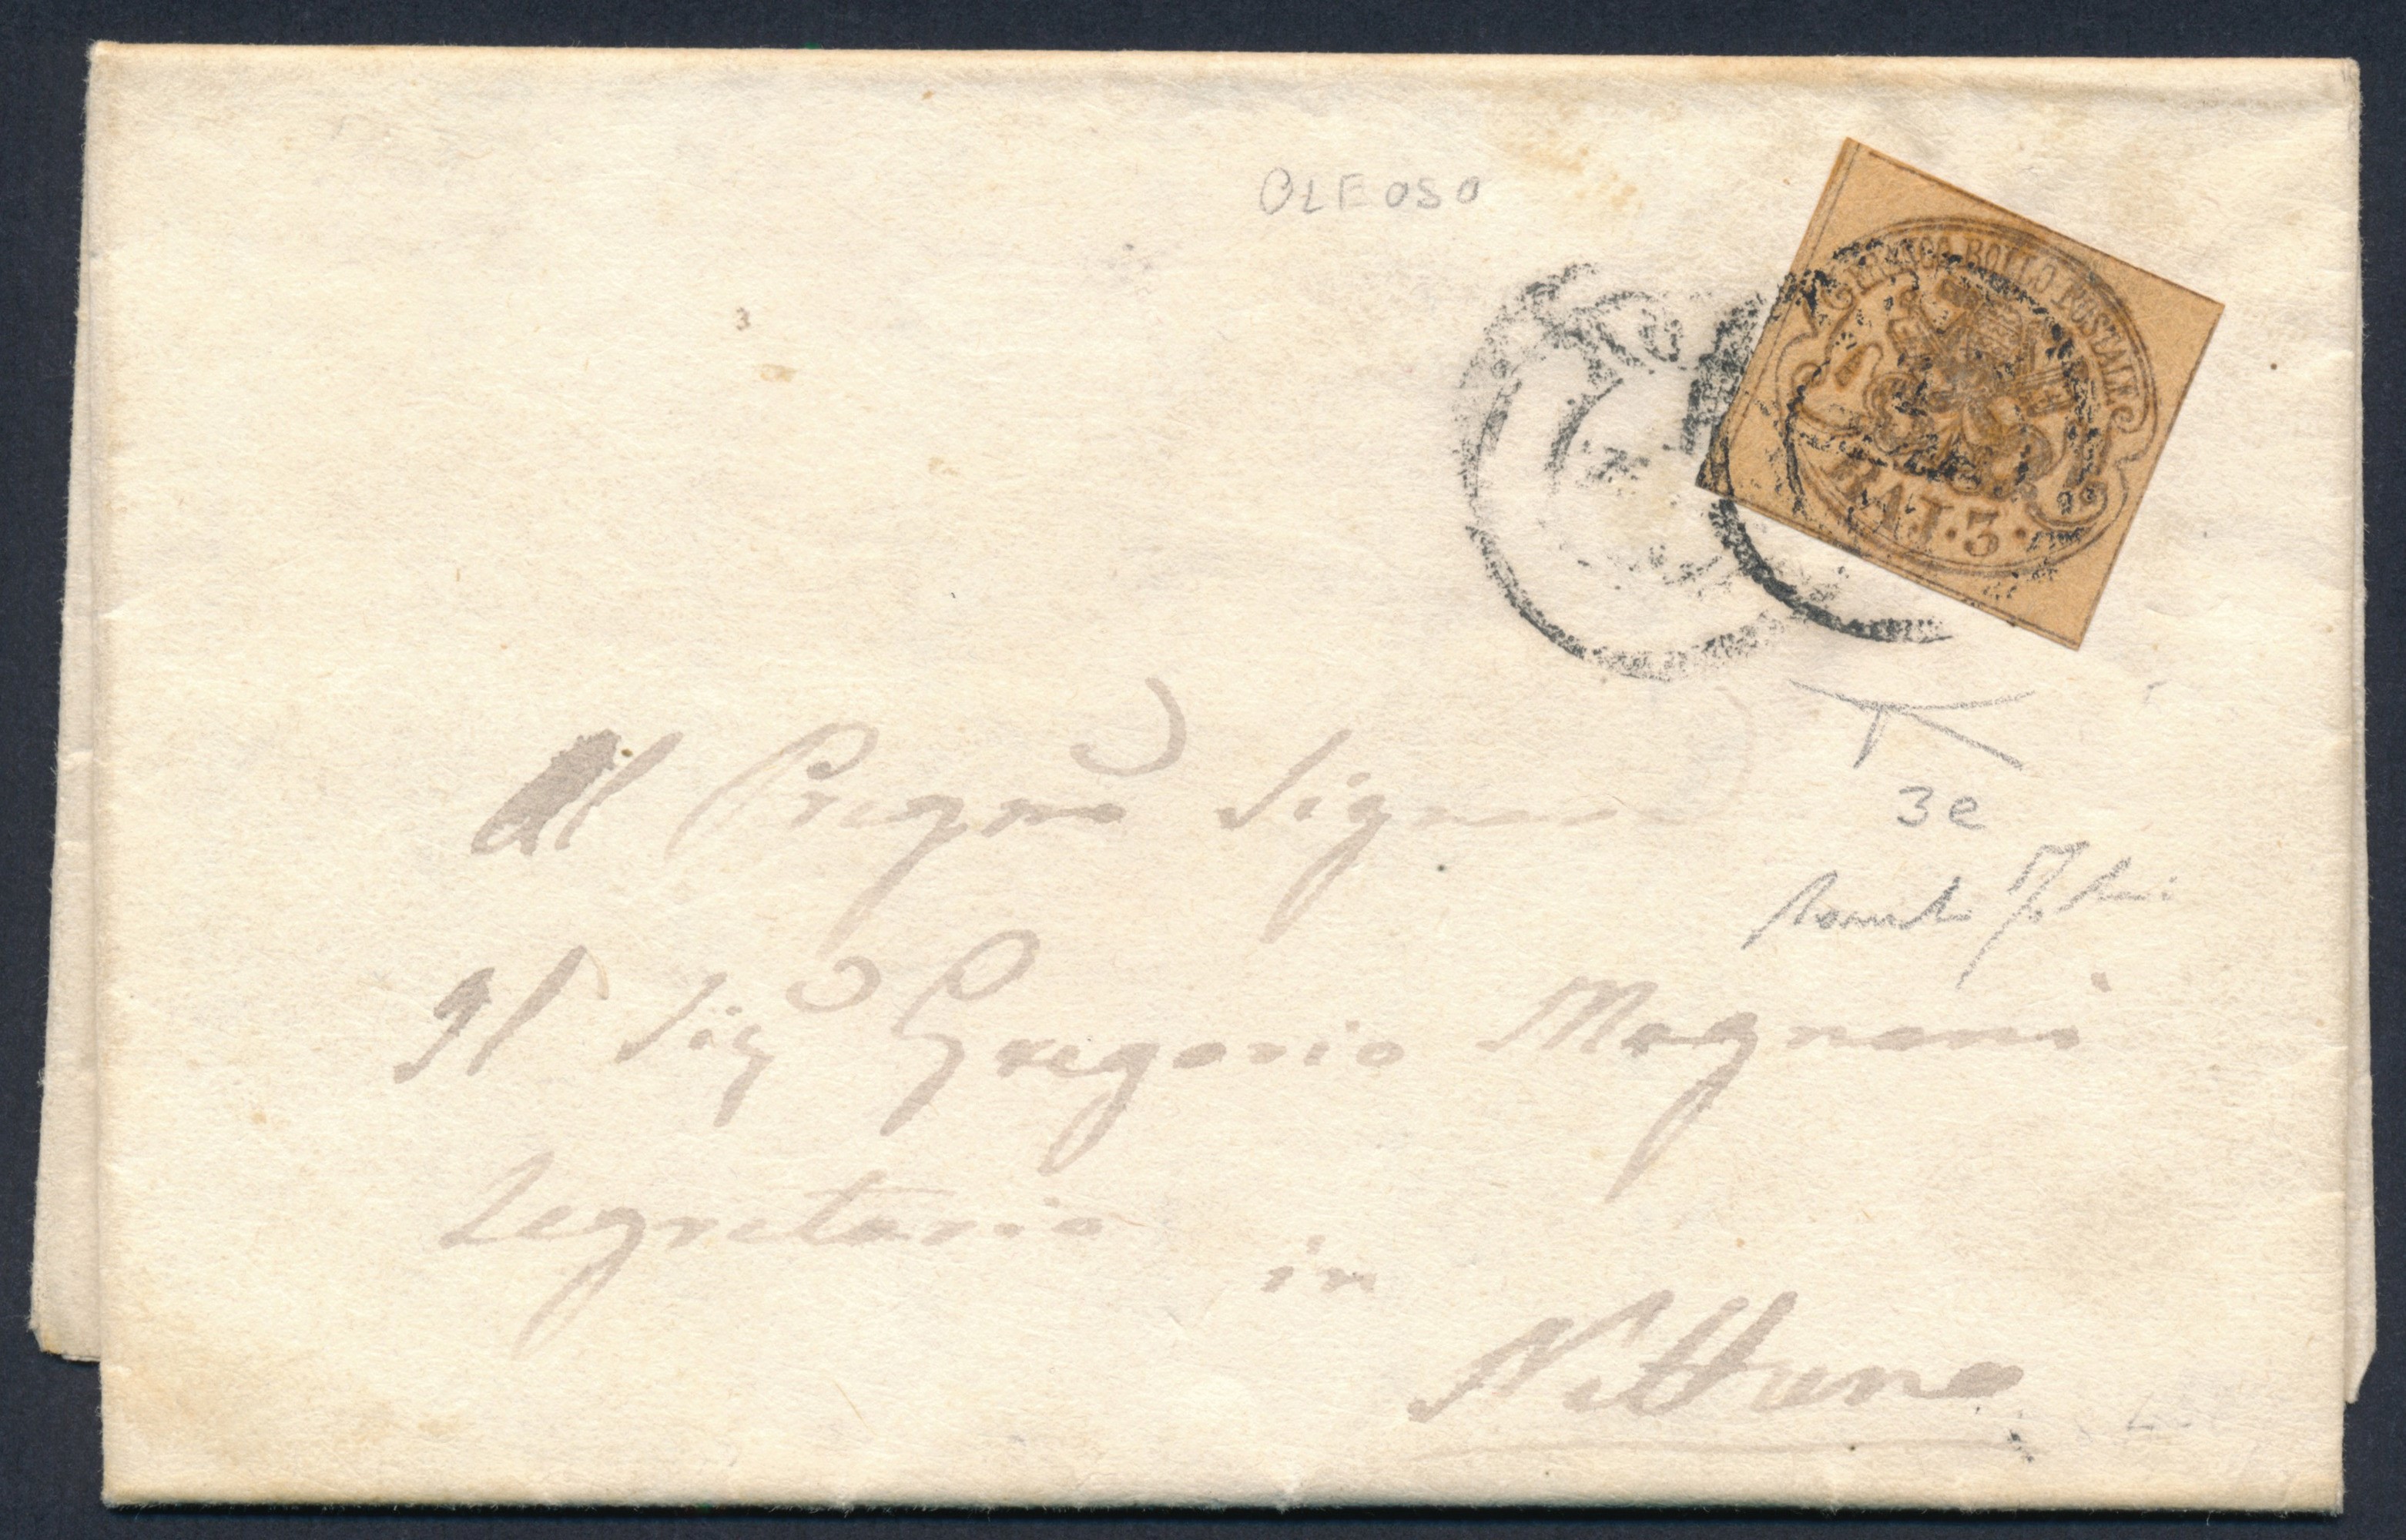 OLEOSO
FRANCO BOLLO POSTALE
BAJ. 3.
Al Pregmo Signore
3e
Il Sigr Gregorio Magnani
Segretario
in
Nettuno